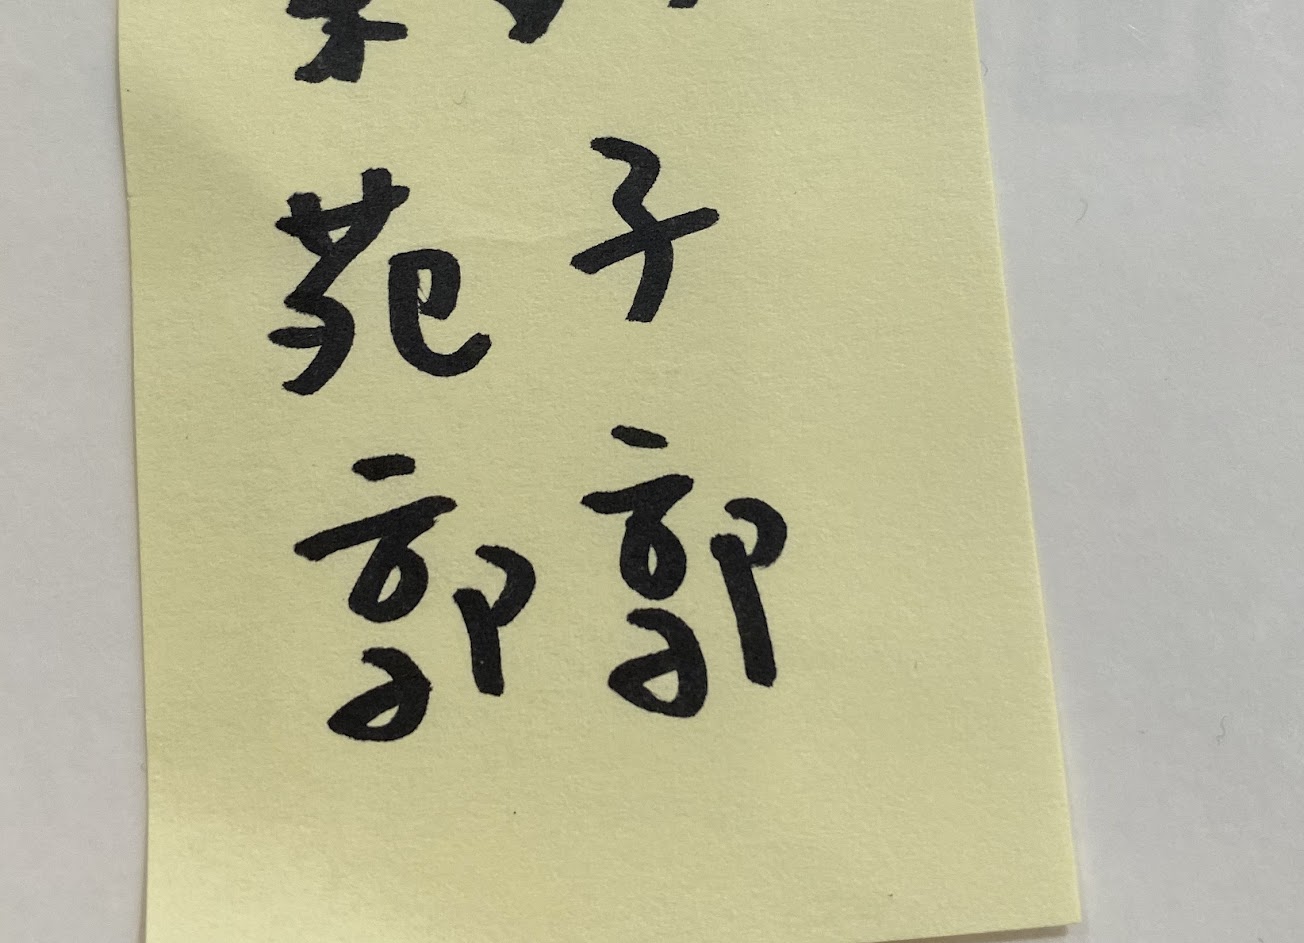 子郭
苑郭